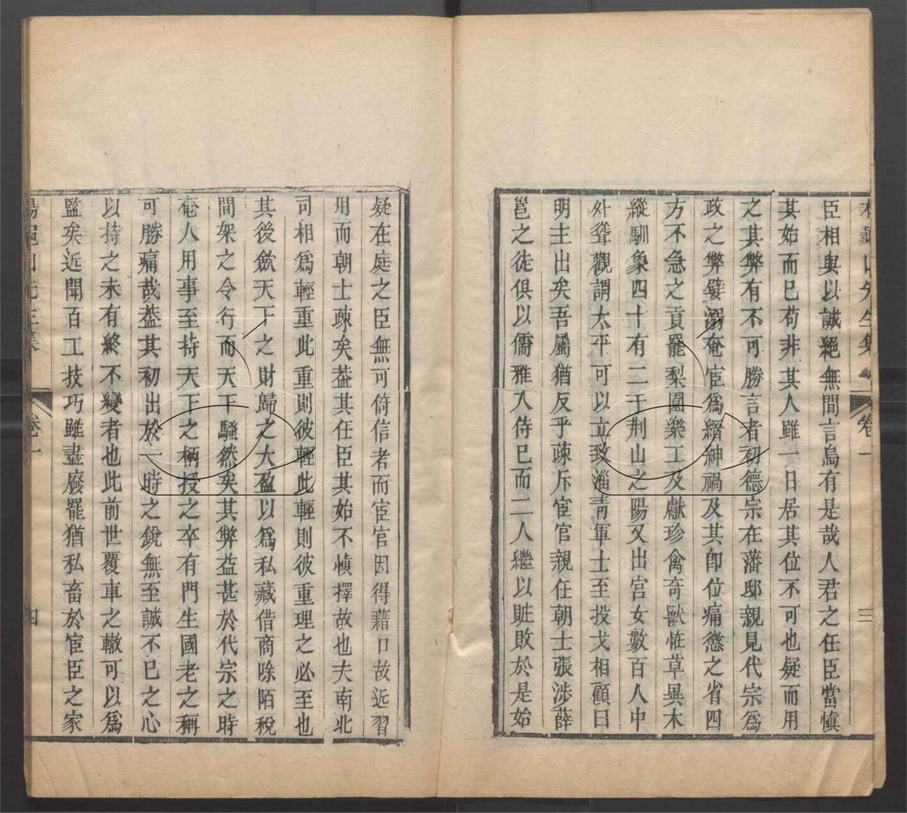 臣相與以誠絕無間言烏有是哉人君之任臣當慎
其始而已苟非其人雖一日居其位不可也疑而用
之其弊有不可勝言者初德宗在藩邸親見代宗爲
政之弊嬖溺奄宦爲縉紳禍及其卽位痛懲之省四
方不急之貢罷梨園樂工及獻珍禽奇獸恠草異木
縱馴象四十有二于荆山之陽又出宫女數百人中
外聳觀謂太平可以立致淄青軍士至投戈相顧曰
明主出矣吾屬猶反乎疎斥宦官親任朝士張涉薛
邕之徒俱以儒雅入侍已而二人繼以賍敗於是始
卷一
三
疑在庭之臣無可倚信者而宦官因得藉口故近習
用而朝士疎矣葢其任臣其始不慎擇故也夫南北
司相爲輕重此重則彼輕此輕則彼重理之必至也
其後斂天下之財歸之大盈以爲私藏借商除陌稅
間架之令行而天下騷然矣其弊益甚於代宗之時
奄人用事至持天下之柄授之卒有門生國老之稱
可勝痛哉葢其初出於一時之銳無至誠不已之心
以持之未有終不變者也此前世覆車之轍可以爲
監矣近聞百工技巧雖盡廢罷猶私畜於宦臣之家
楊龜山先生集
卷一
四